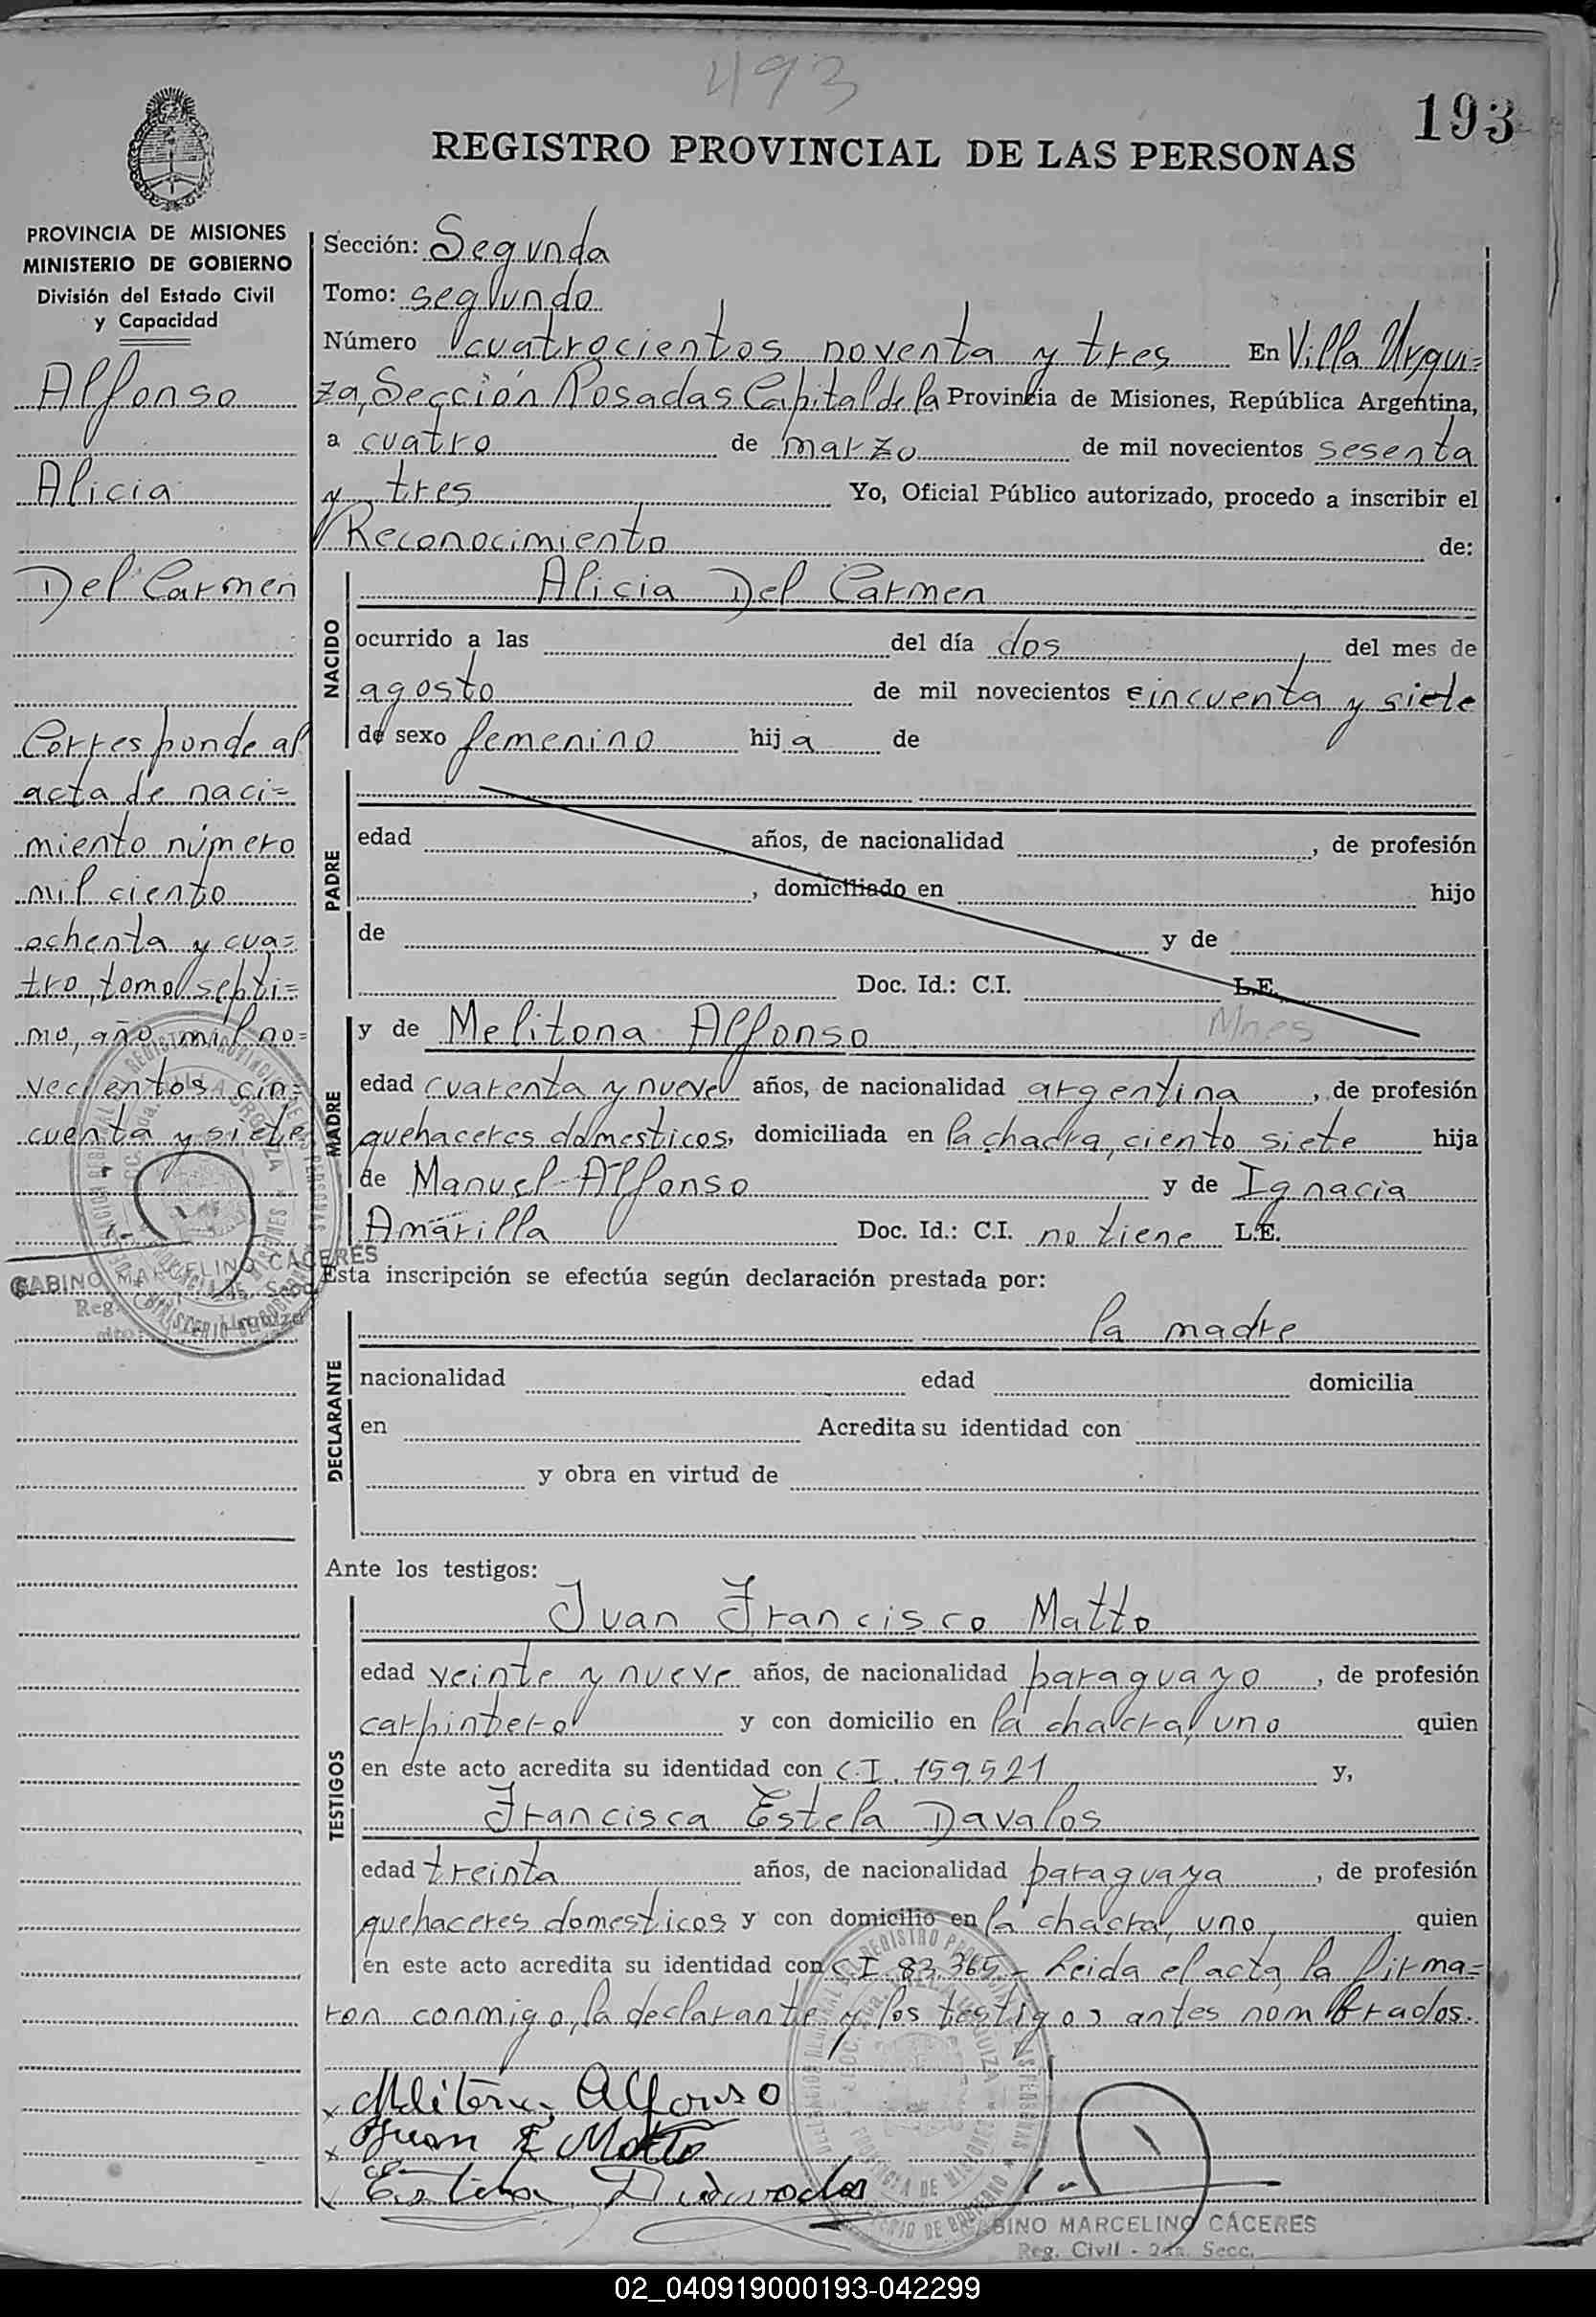 493
193
REGISTRO PROVINCIAL DE LAS PERSONAS
PROVINCIA DE MISIONES
MINISTERIO DE GOBIERNO
División del Estado Civil
y Capacidad
Alfonso
Alicia
Del Carmen
Corresponde al
acta de naci=
miento número
mil ciento
ochenta y cua=
tro, tomo septi=
mo, año mil no=
vecientos cin=
cuenta y siete
GABINO MARCELINO CÁCERES
Sección: Segunda
Tomo: segundo
Número cuatrocientos noventa y tres En Villa Urqui=
za, Sección Posadas Capital de la Provincia de Misiones, República Argentina,
a cuatro de marzo de mil novecientos sesenta
y tres Yo, Oficial Público autorizado, procedo a inscribir el
Reconocimiento de:
NACIDO
Alicia Del Carmen
ocurrido a las del día dos del mes de
agosto de mil novecientos cincuenta y siete
de sexo femenino hija de
PADRE
edad años, de nacionalidad , de profesión
, domiciliado en hijo
de y de
Doc. Id.: C.I. L.E.
Mnes
MADRE
y de Melitona Alfonso
edad cuarenta y nueve años, de nacionalidad argentina , de profesión
quehaceres domesticos, domiciliada en la chacra, ciento siete hija
de Manuel Alfonso y de Ignacia
Amarilla Doc. Id.: C.I. no tiene L.E.
Esta inscripción se efectúa según declaración prestada por:
DECLARANTE
la madre
nacionalidad edad domicilia
en Acredita su identidad con
y obra en virtud de
Ante los testigos:
TESTIGOS
Juan Francisco Matto
edad veinte y nueve años, de nacionalidad paraguayo , de profesión
carpintero y con domicilio en la chacra, uno quien
en este acto acredita su identidad con C.I. 159.521 y,
Francisca Estela Davalos
edad treinta años, de nacionalidad paraguaya , de profesión
quehaceres domesticos y con domicilio en la chacra, uno quien
en este acto acredita su identidad con C I 83.365.- Leida el acta, la firma=
ron conmigo, la declarante y los testigos antes nombrados.
x Melitona Alfonso
x Juan F Matto
x Estela Davalos
GABINO MARCELINO CÁCERES
Reg. Civil - 2da. Secc.
02_040919000193-042299